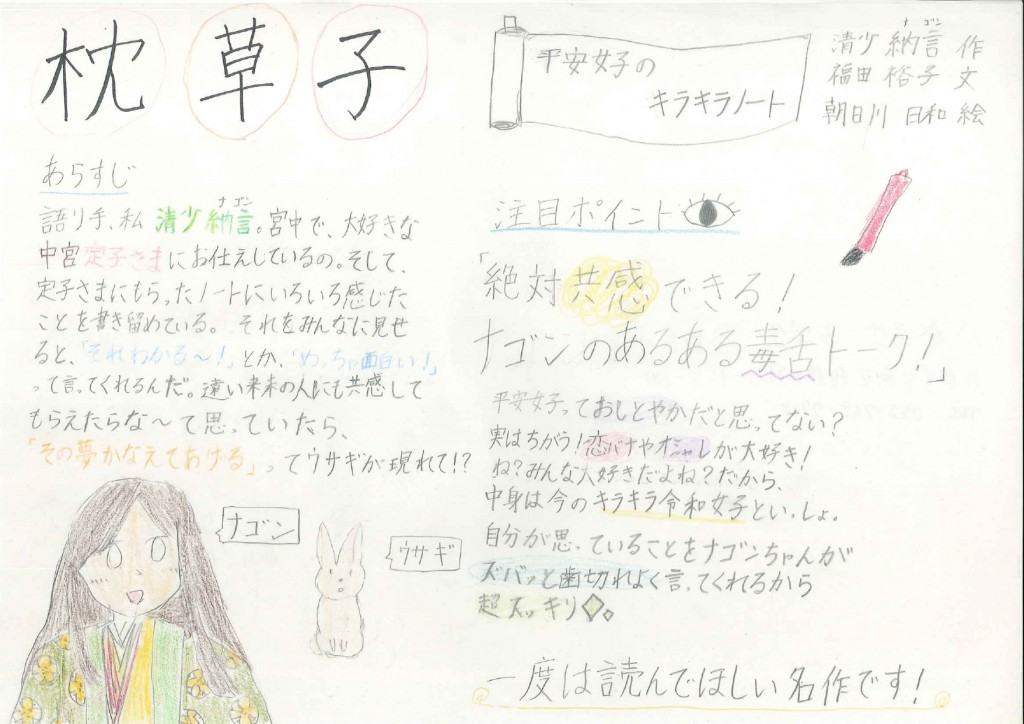 枕草子
平安女子の
キラキラノート
清少納言 作
ナゴン
福田 裕子 文
朝日川 日和 絵
あらすじ
語り手、私 清少納言。宮中で、大好きな
ナゴン
中宮定子さまにお仕えしているの。そして、
定子さまにもらったノートにいろいろ感じた
ことを書き留めている。それをみんなに見せ
ると、「それわかる〜!」とか、「めっちゃ面白い!」
って言ってくれるんだ。遠い未来の人にも共感して
もらえたらな〜て思っていたら、
「その夢かなえてあげる」ってウサギが現れて!?
ナゴン
ウサギ
注目ポイント
「絶対共感できる!
ナゴンのあるある毒舌トーク!」
平安女子っておしとやかだと思ってない?
実はちがう!恋バナやオシャレが大好き!
ね?みんな大好きだよね?だから、
中身は今のキラキラ令和女子といっしょ。
自分が思っていることをナゴンちゃんが
ズバッと歯切れよく言ってくれるから
超スッキリ◇。
一度は読んでほしい名作です!